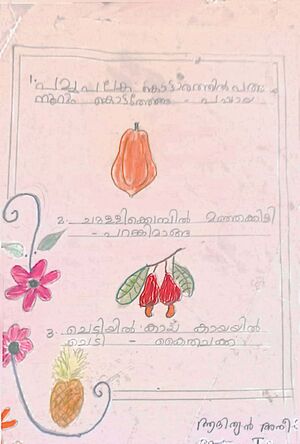 1. പച്ചപ്പലക കൊട്ടാരത്തിൽ പത്തു
നൂറും കൊട്ടത്തേങ്ങ - പപ്പായ
2. ചുള്ളിക്കൊമ്പിൽ മഞ്ഞക്കിളി
- പറങ്കിമാങ്ങ
3. ചെടിയിൽ കായ് കായയിൽ
ചെടി - കൈതചക്ക